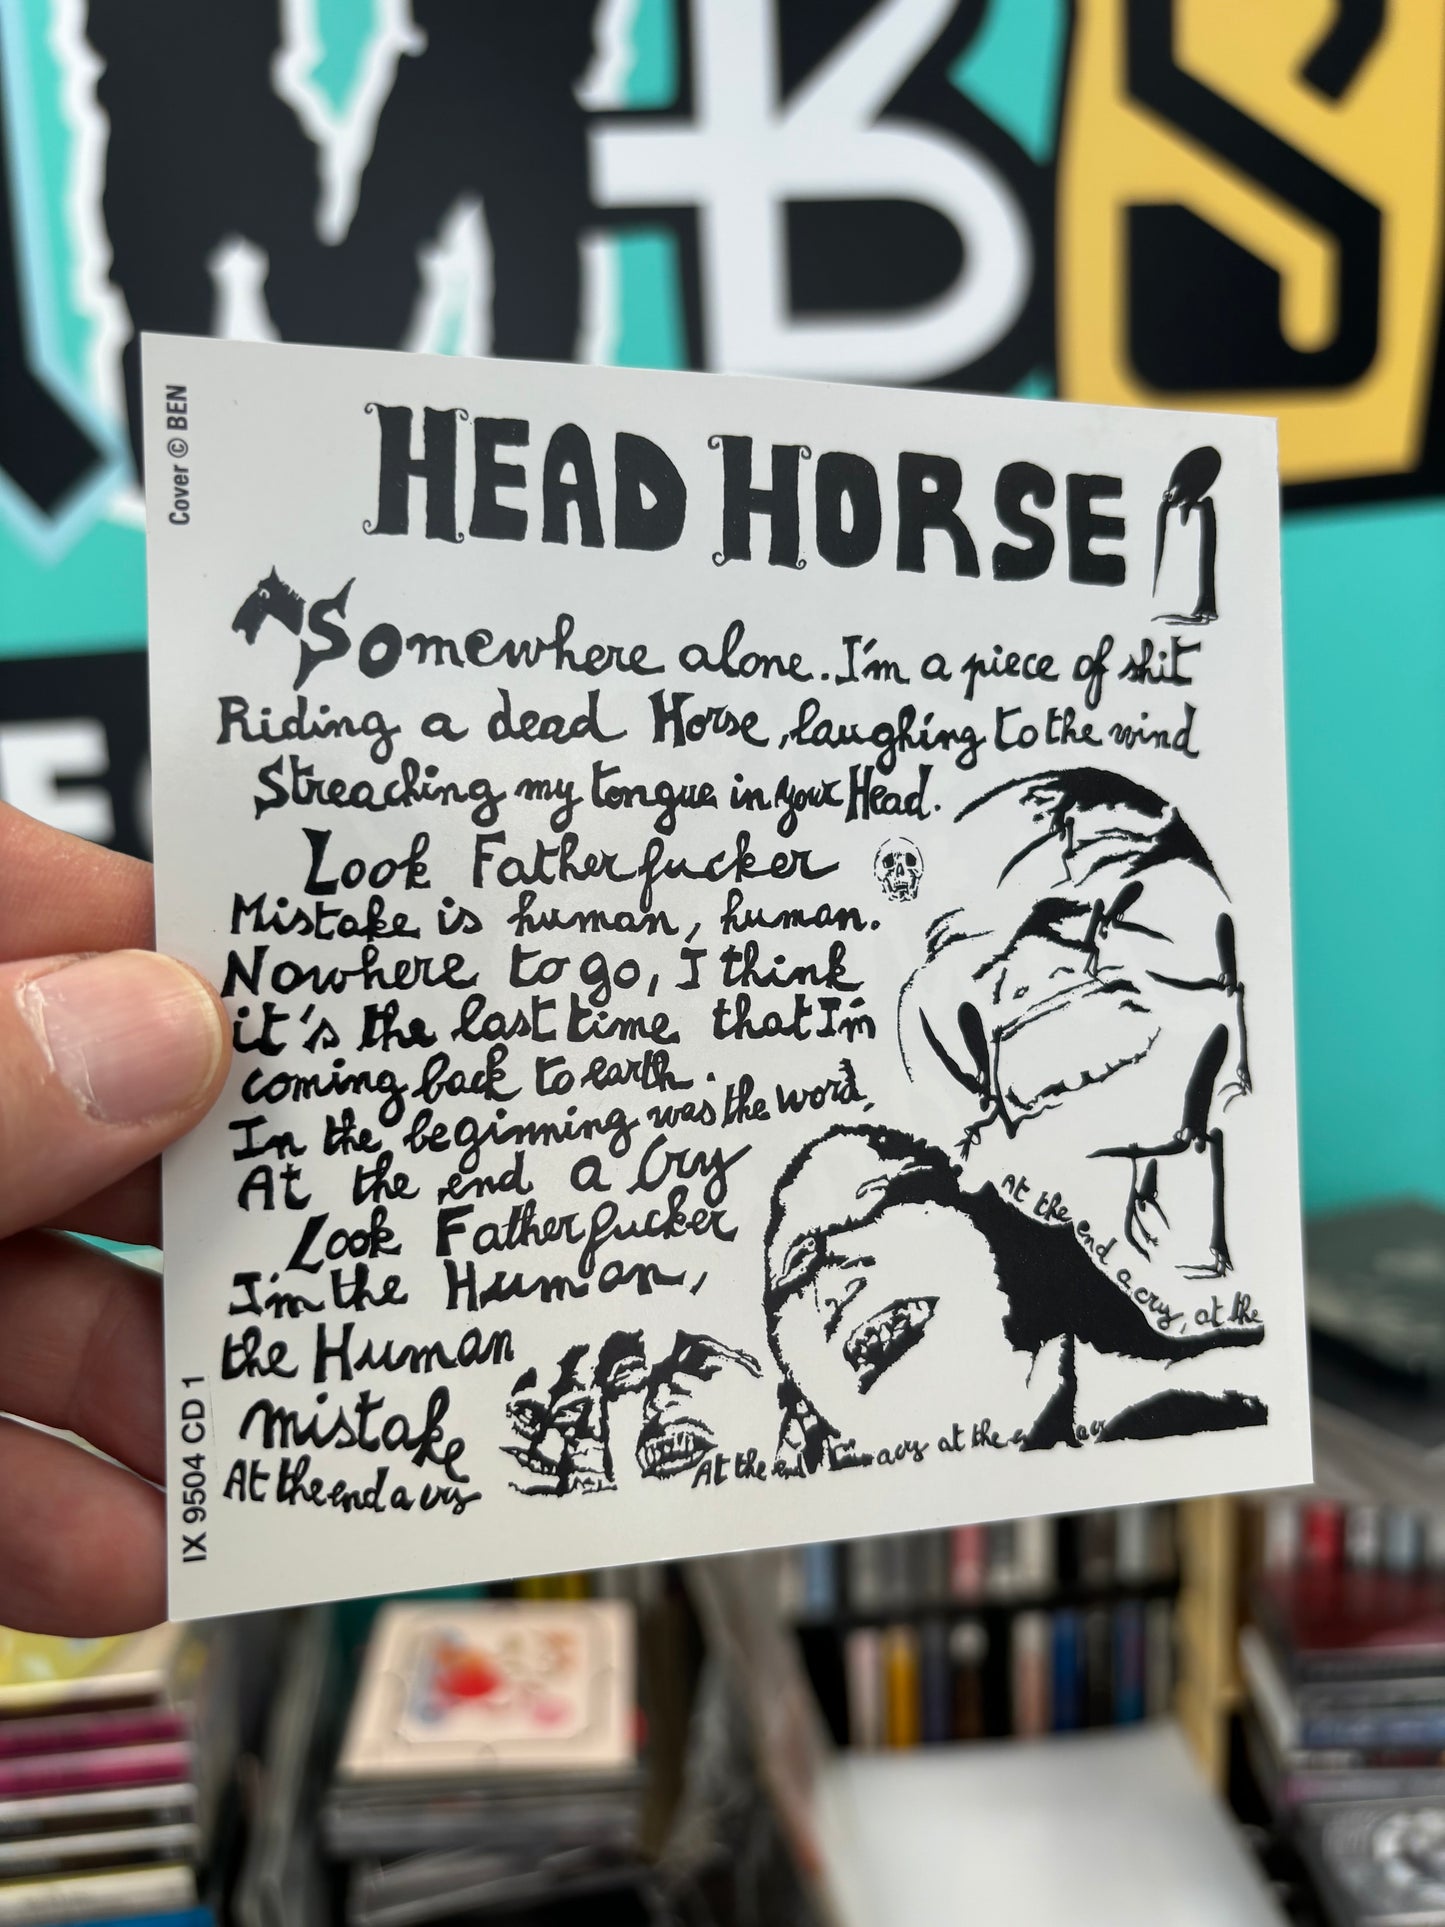 MBS
Cover © BEN
HEAD HORSE
Somewhere alone. I'm a piece of shit
Riding a dead Horse, laughing to the wind
Streaching my tongue in your Head.
Look Fatherfucker
Mistake is human, human.
Nowhere to go, I think
it's the last time that I'm
coming back to earth.
In the beginning was the word,
At the end a Cry
Look Fatherfucker
I'm the Human,
the Human
mistake
At the end a cry
At the end a cry at the
At the end a cry, at the
IX 9504 CD 1